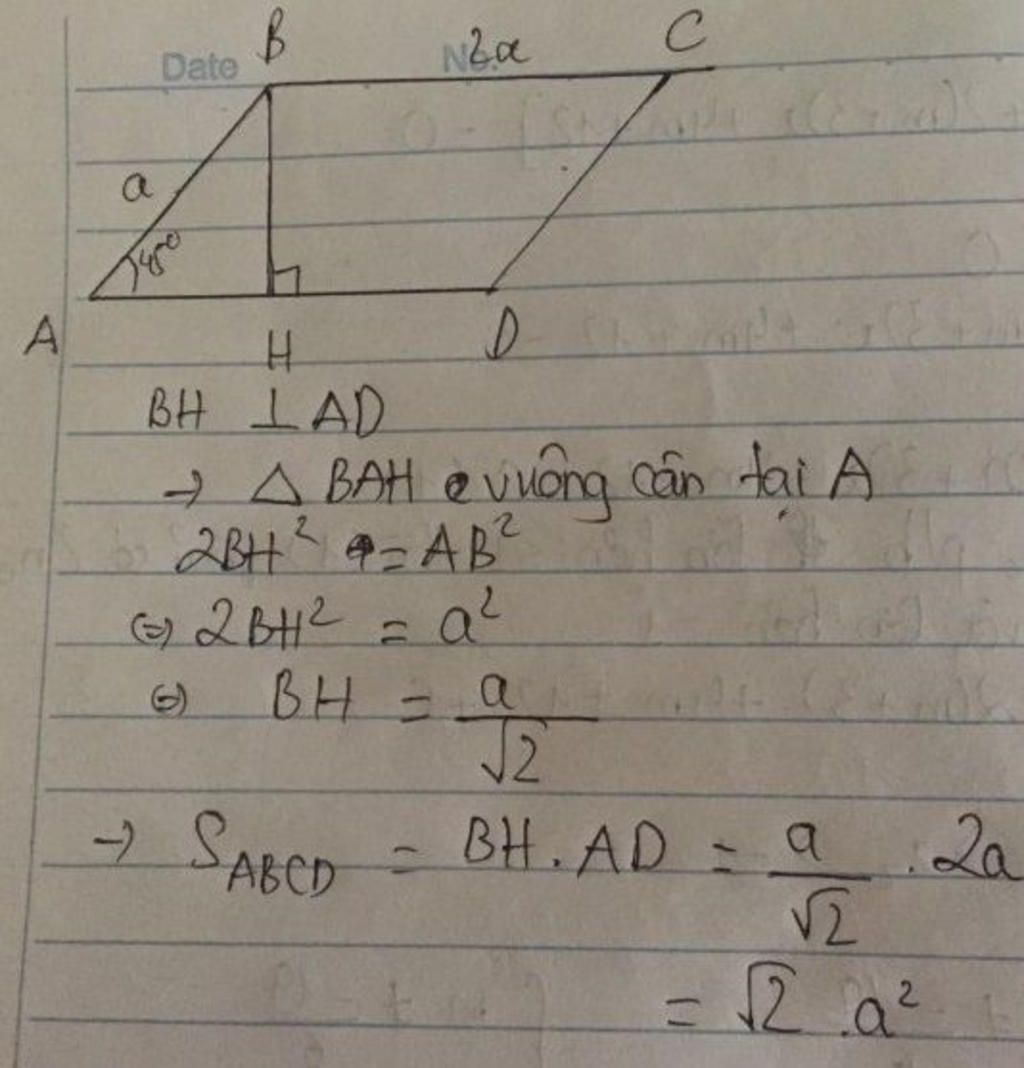 Date No.
B 2a C
a
45°
A H D
BH ⊥ AD
→ △ BAH vuông cân tại A
2BH² = AB²
⇔ 2BH² = a²
⇔ BH = a/√2
→ S_ABCD = BH . AD = a/√2 . 2a
= √2 . a²